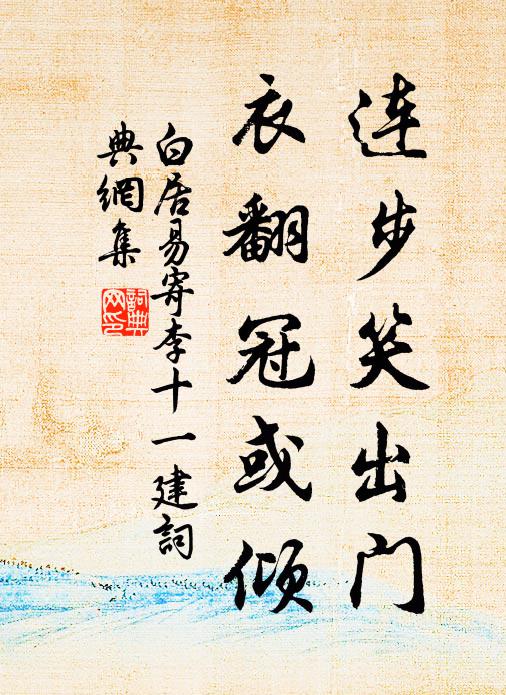 连步笑出门
衣翻冠或倾
白居易寄李十一建詞
典網集
詞典
网印